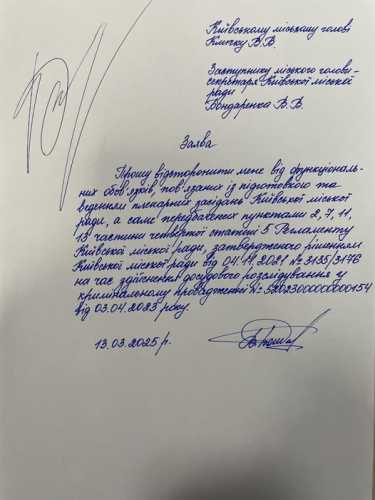 Київському міському голові
Кличку В.В.
Заступнику міського голови-
секретаря Київської міської
ради
Бондаренка В.В.
Заява
Прошу відсторонити мене від функціональ-
них обов'язків, пов'язаних із підготовкою та
веденням пленарних засідань Київської міської
ради, а саме передбачених пунктами 2, 7, 11,
13 частини четвертої статті 5 Регламенту
Київської міської ради, затвердженого рішенням
Київської міської ради від 04.11.2021 № 3135/3176
на час здійснення досудового розслідування у
кримінальному провадженні №
від 03.04.2023 року.
13.03.2025 р.